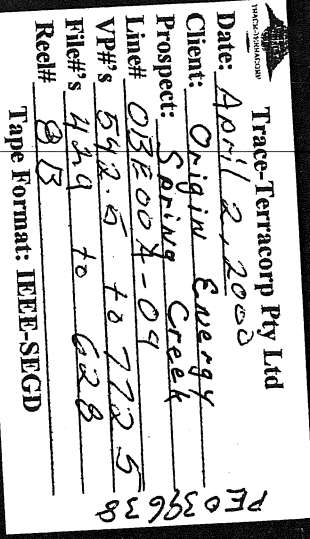 TRACE-TERRACORP
Trace-Terracorp Pty Ltd
Date: April 2, 2000
Client: Origin Energy
Prospect: Spring Creek
Line# OBE00A-09
VP#'s 542.5 to 772.5
File#'s 429 to 628
Reel# 8B
Tape Format: IEEE-SEGD
PE039638